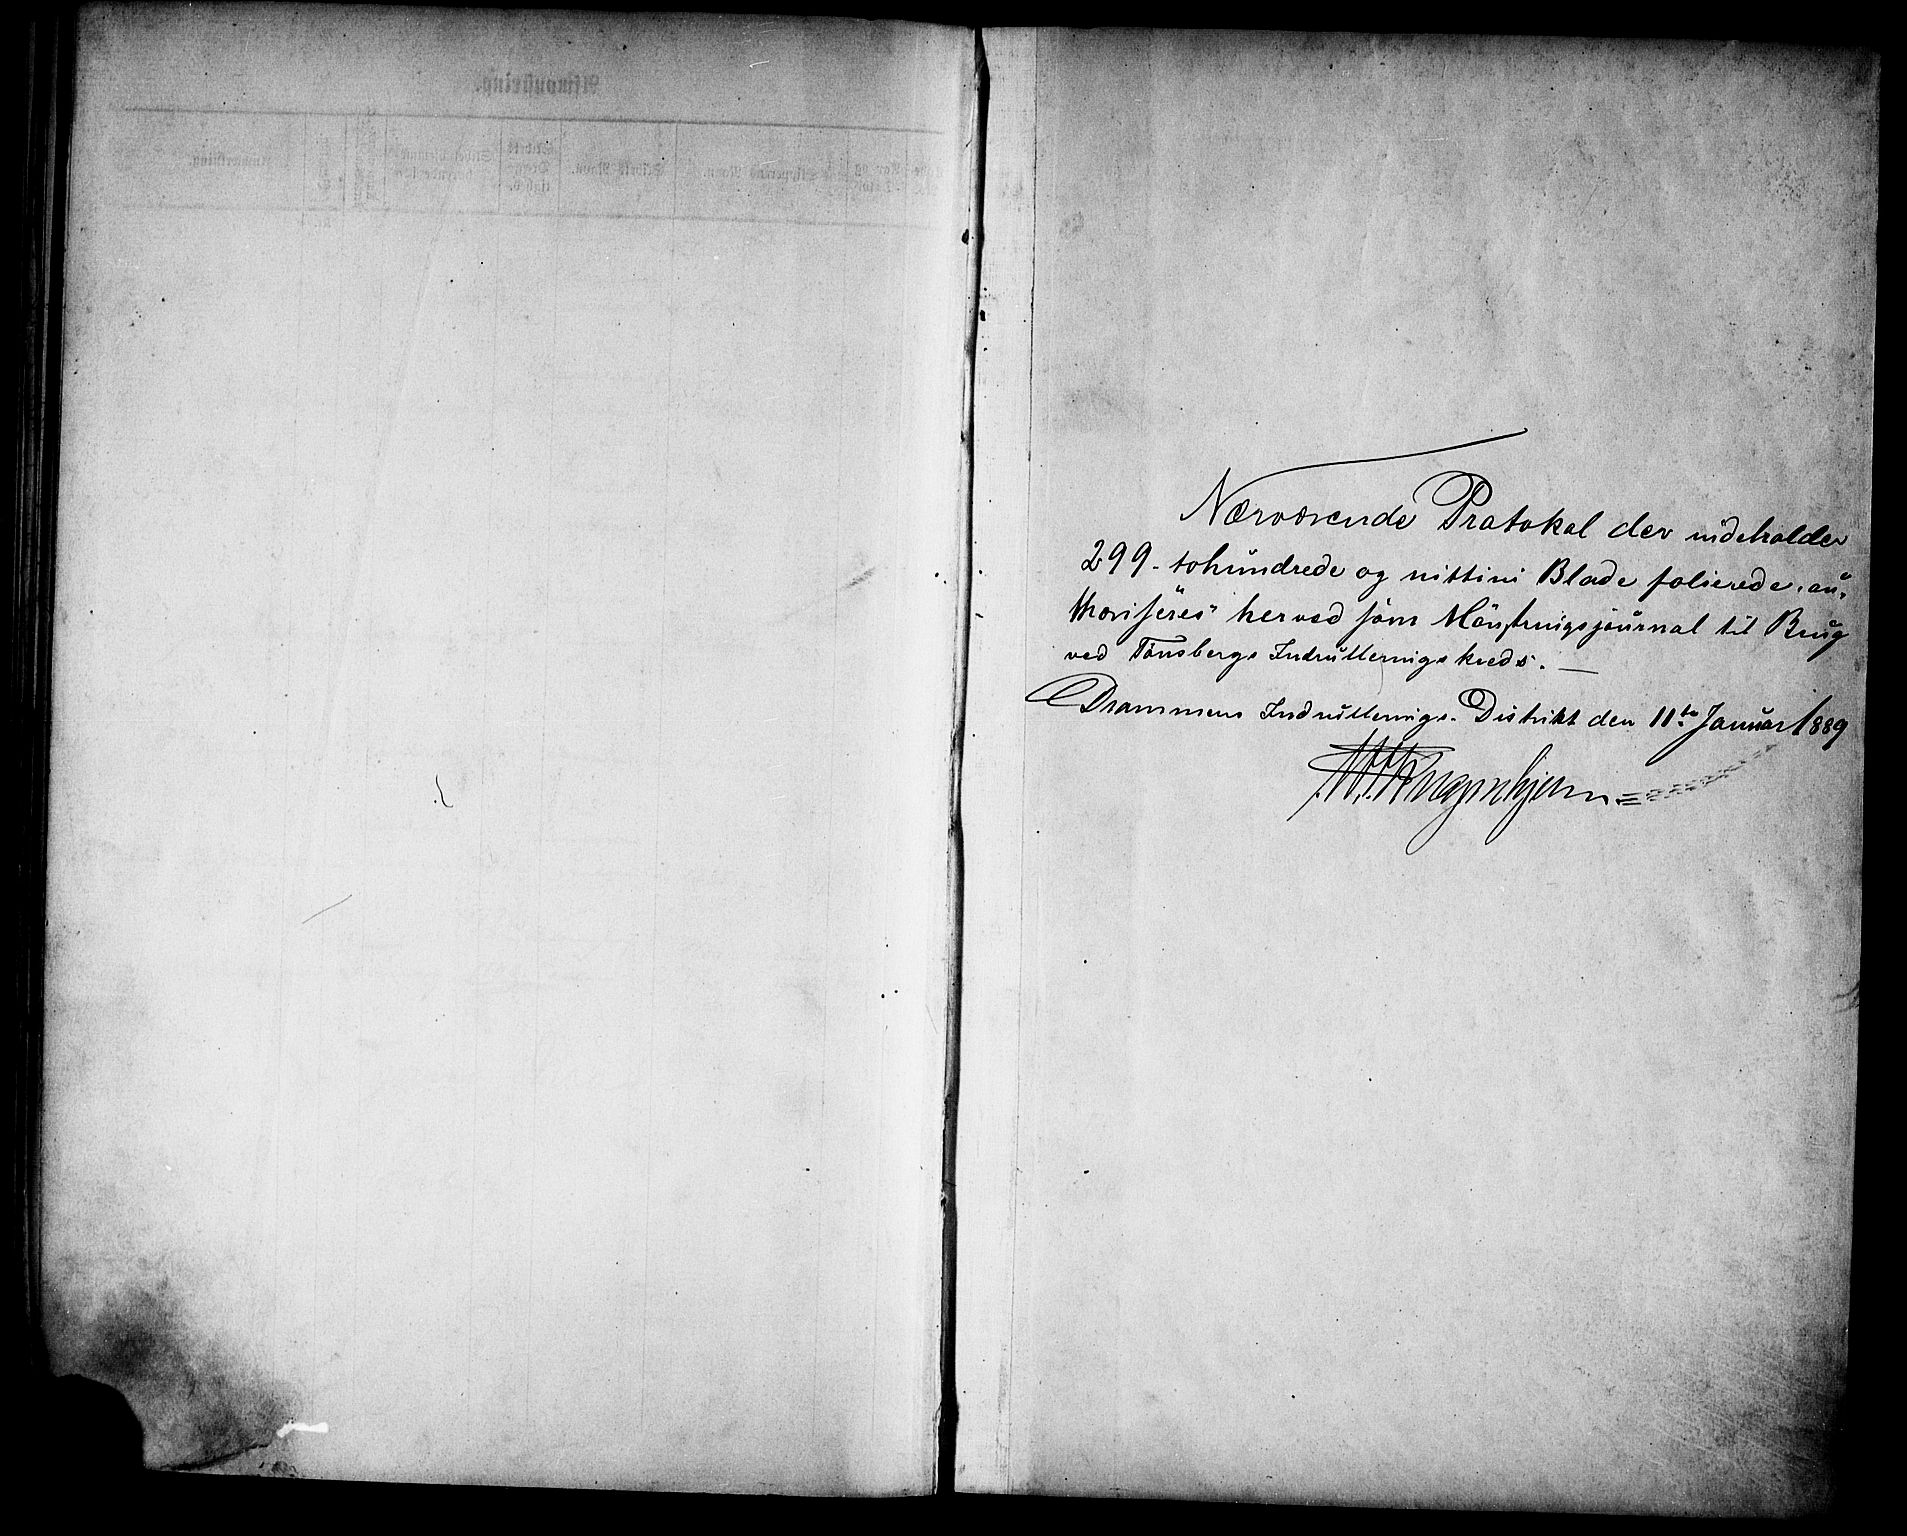 Afmønstring.
Nærværende Protokol der indeholder
299 - tohundrede og nittini Blade folierede, au-
thoriseres herved som Mønstringsjournal til Brug
ved Tønsbergs Indrulleringskreds. —
Drammens Indrullerings-Distrikt den 11te Januar 1889